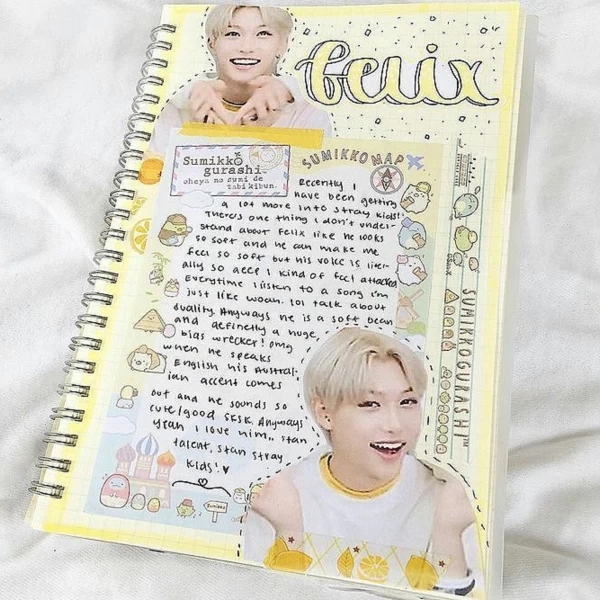 felix
Sumikko
gurashi
oheya no sumi de
tabi kibun.
SUMIKKO MAP
Recently I
have been getting
a lot more into stray kids!!
There's one thing I don't under-
stand about Felix like he looks
so soft and he can make me
feel so soft but his voice is liter-
ally so deep I kind of feel attacked
Everytime I listen to a song I'm
just like woah. lol talk about
duality. Anyways he is a soft bean
and definetly a huge
bias wrecker! omg
when he speaks
English his Austral-
ian accent comes
out and he sounds so
cute/good SKSK. Anyways
yeah I love him,, stan
talent, stan stray
kids!
Sumikko
SUMIKKOGURASHI